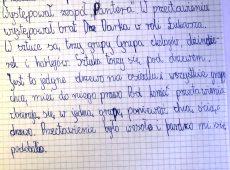 Występował zespół Pantera. W przedstawieniu
występował brat Darka w roli Łukasza.
W sztuce są trzy grupy. Grupa chłopców, dziew
i harlejów. Sztuka toczy się pod drzewem.
Jest to jedyne drzewo na osiedlu i wszystkie grupy
chcą mieć do niego prawo. Pod koniec przedstawienia
się w jedną grupę, ponieważ chcą ściąć
drzewo. Przedstawienie było wesołe i bardzo mi się
podobało.